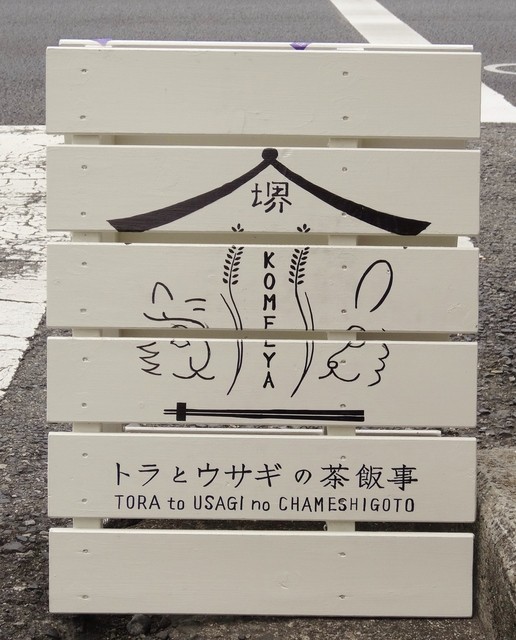 堺
KOMEYA
トラとウサギの茶飯事
TORA to USAGI no CHAMESHIGOTO